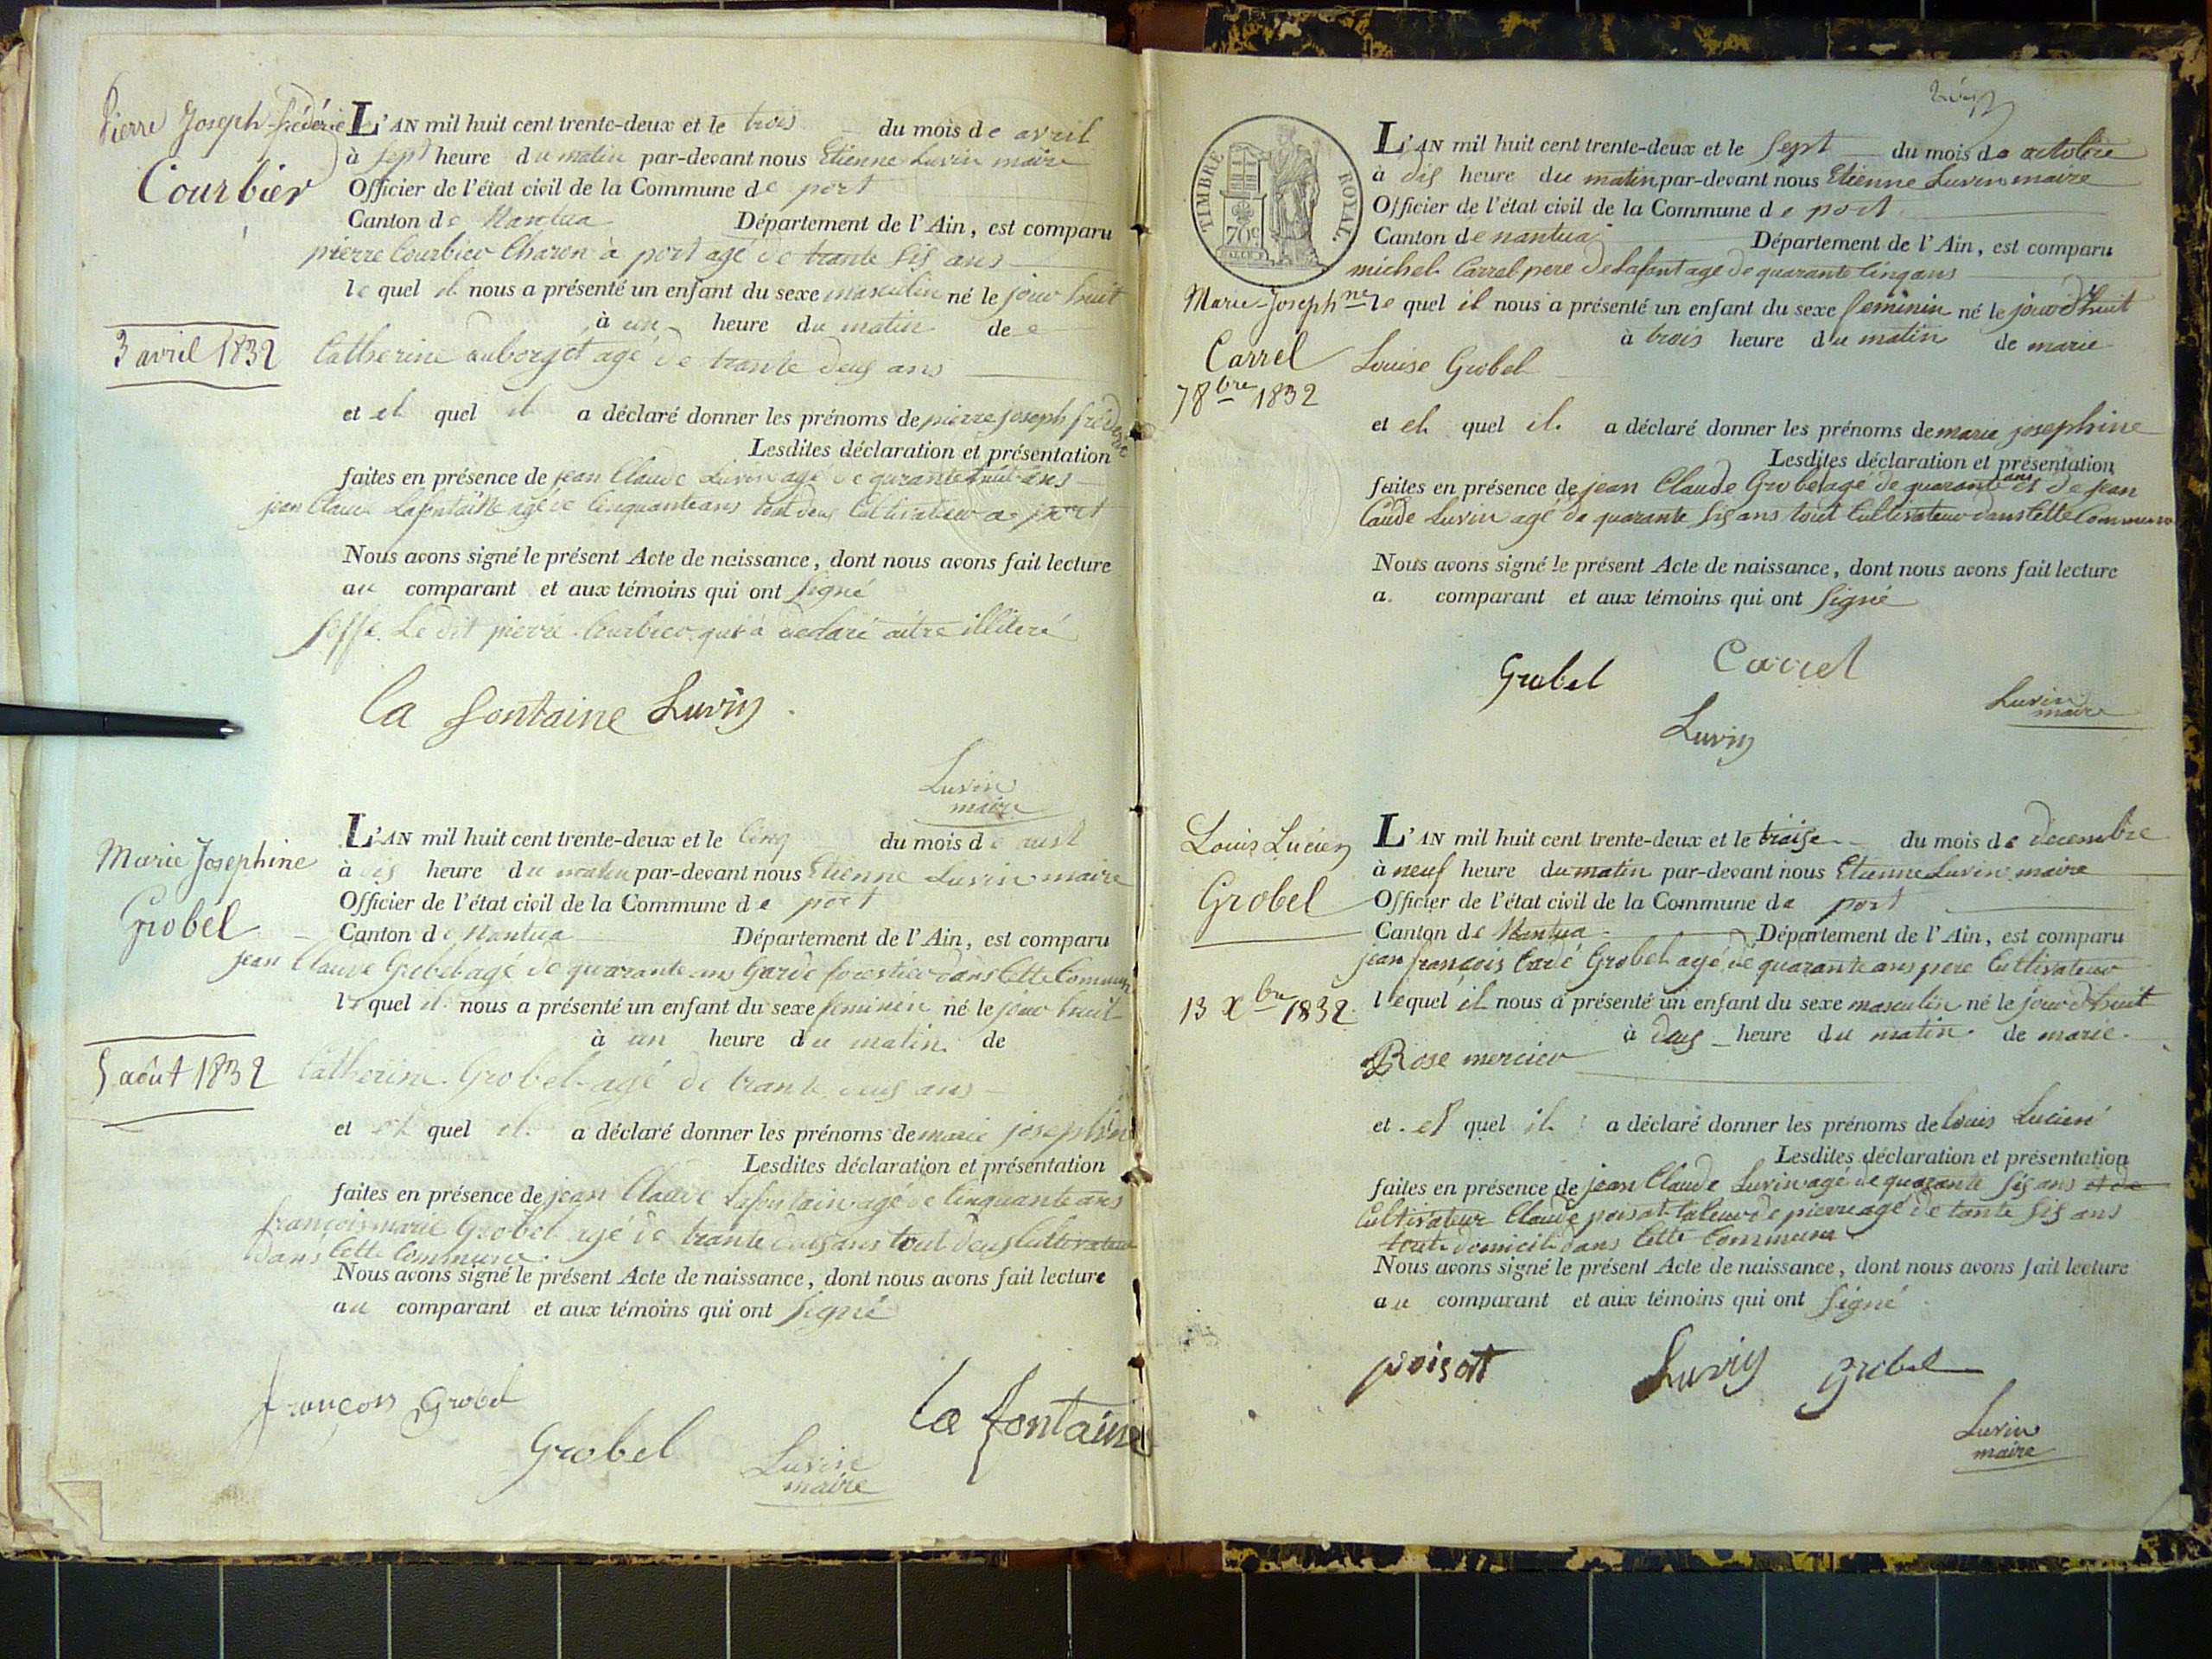 Pierre Joseph frédéric
Courbier
3 avril 1832
L'AN mil huit cent trente-deux et le trois du mois de avril
à sept heure du matin par-devant nous Etienne Luvin maire
Officier de l'état civil de la Commune de port
Canton de Nantua Département de l'Ain, est comparu
pierre Courbier Charon à port agé de trante sis ans
le quel il nous a présenté un enfant du sexe masculin né le jour huit
à un heure du matin de
Catherine auborget agé de trante deus ans
et el quel il a déclaré donner les prénoms de pierre joseph frédéric
Lesdites déclaration et présentation
faites en présence de jean Claude Luvin agé de quarante huit ans
jean Claude Lafontaine agé de Cinquante ans tout deus Cultivateur a port
Nous avons signé le présent Acte de naissance, dont nous avons fait lecture
au comparant et aux témoins qui ont signé
Le dit pierre Courbier qui a declaré aitre illiteré
la fontaine Luvin
Luvin
maire
Marie Josephine
Grobel
5 août 1832
L'AN mil huit cent trente-deux et le Cinq du mois de aust
à dis heure du matin par-devant nous Etienne Luvin maire
Officier de l'état civil de la Commune de port
Canton de Nantua Département de l'Ain, est comparu
jean Claude Grobel agé de quarante ans garde forestier dans Cette Commune
le quel il nous a présenté un enfant du sexe feminin né le jour huit
à un heure du matin de
Catherine Grobel agé de trante deus ans
et el quel il a déclaré donner les prénoms de marie josephine
Lesdites déclaration et présentation
faites en présence de jean Claude Lafontaine agé de Cinquante ans
françois marie Grobel agé de trante deus ans tout deus Cultivateur
dans Cette Commune
Nous avons signé le présent Acte de naissance, dont nous avons fait lecture
au comparant et aux témoins qui ont signé
françois Grobel
la fontaine
Grobel
Luvin
maire
TIMBRE ROYAL.
70c
Marie-Josephne
Carrel
7 8bre 1832
L'AN mil huit cent trente-deux et le sept du mois de actobre
à dis heure du matin par-devant nous Etienne Luvin maire
Officier de l'état civil de la Commune de port
Canton de nantua Département de l'Ain, est comparu
michel Carrel pere de Lafant age de quarante Cinq ans
le quel il nous a présenté un enfant du sexe feminin né le jour d'huit
à trois heure du matin de marie
Louise Grobel
et el quel il a déclaré donner les prénoms de marie josephine
Lesdites déclaration et présentation
faites en présence de jean Claude Grobel agé de quarante ans et de jean
Claude Luvin agé de quarante sis ans tout Cultivateur dans Cette Commune
Nous avons signé le présent Acte de naissance, dont nous avons fait lecture
a comparant et aux témoins qui ont signé
Grobel Carrel
Luvin
maire
Luvin
Louis Lucien
Grobel
13 Xbre 1832
L'AN mil huit cent trente-deux et le traise du mois de decembre
à neuf heure du matin par-devant nous Etienne Luvin maire
Officier de l'état civil de la Commune de port
Canton de Nantua Département de l'Ain, est comparu
jean françois Grobel agé de quarante ans pere Cultivateur
lequel il nous a présenté un enfant du sexe masculin né le jour d'huit
à deus heure du matin de marie
Rose mercier
et el quel il a déclaré donner les prénoms de Louis Lucien
Lesdites déclaration et présentation
faites en présence de jean Claude Luvin agé de quarante sis ans et de
Cultivateur Claude poisat taleur de pierre agé de tante sis ans
tout domicilé dans Cette Commune
Nous avons signé le présent Acte de naissance, dont nous avons fait lecture
au comparant et aux témoins qui ont signé
poisatt Luvin grobel
Luvin
maire